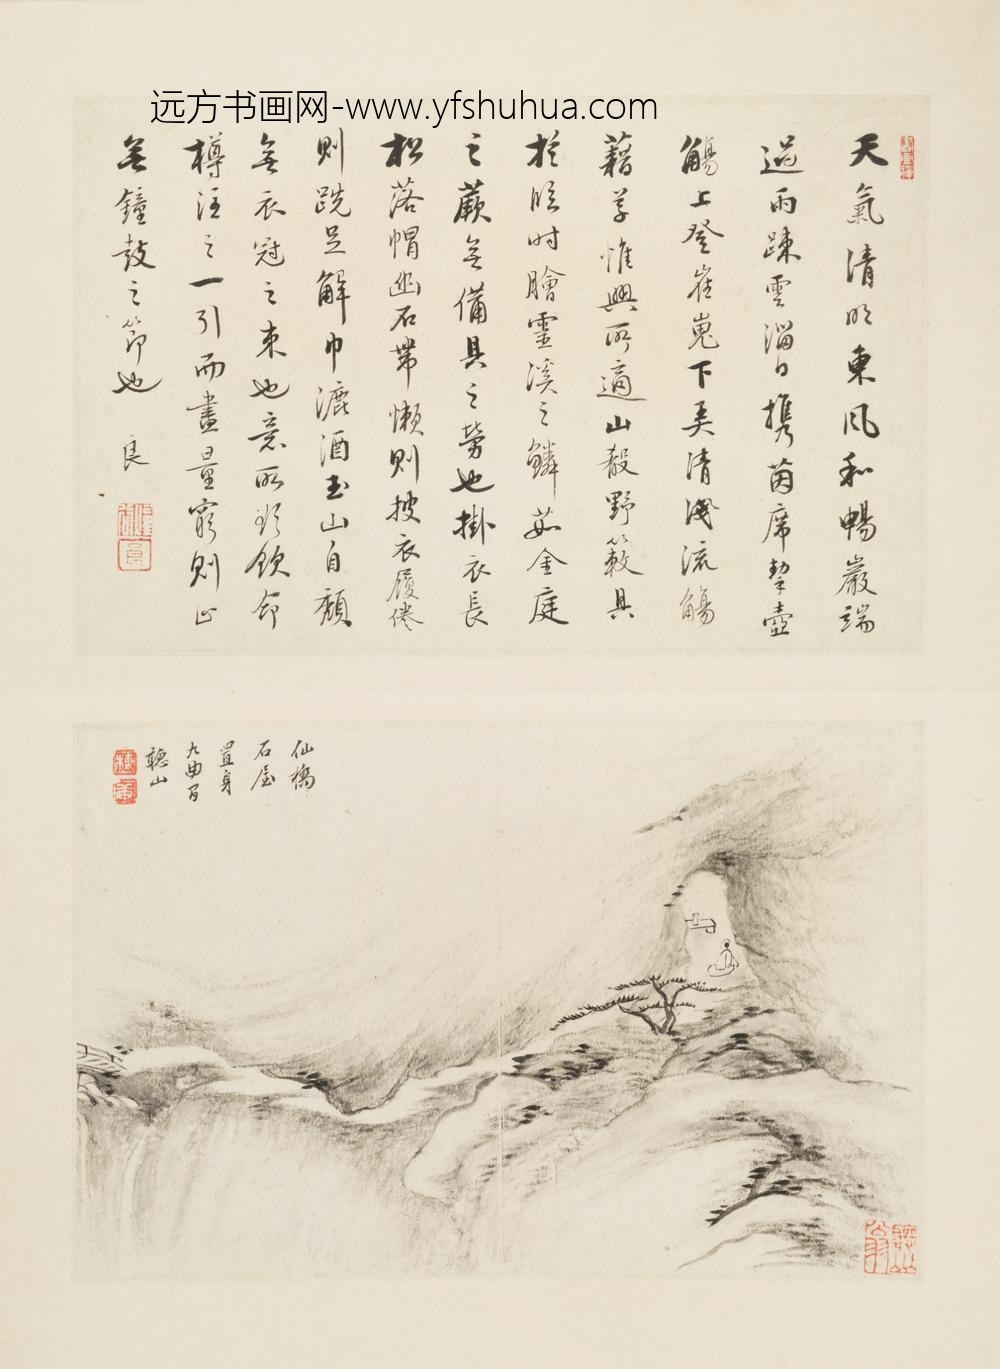 远方书画网-www.yfshuhua.com
天氣清明東風和暢巖端
過雨踈雲溜日携茵席挈壺
觴上登崔嵬下弄清淺流觴
藉草惟興所適山殽野蔌具
於臨時膾靈溪之鱗茹金庭
之蕨無備具之勞也掛衣長
松落帽幽石帶懶則披衣履倦
則跣足解巾漉酒玉山自頹
無衣冠之束也意所欲飲命
樽注之一引而盡量窮則止
無鐘鼓之節也 良
仙橋
石屋
置身
九曲
聽山